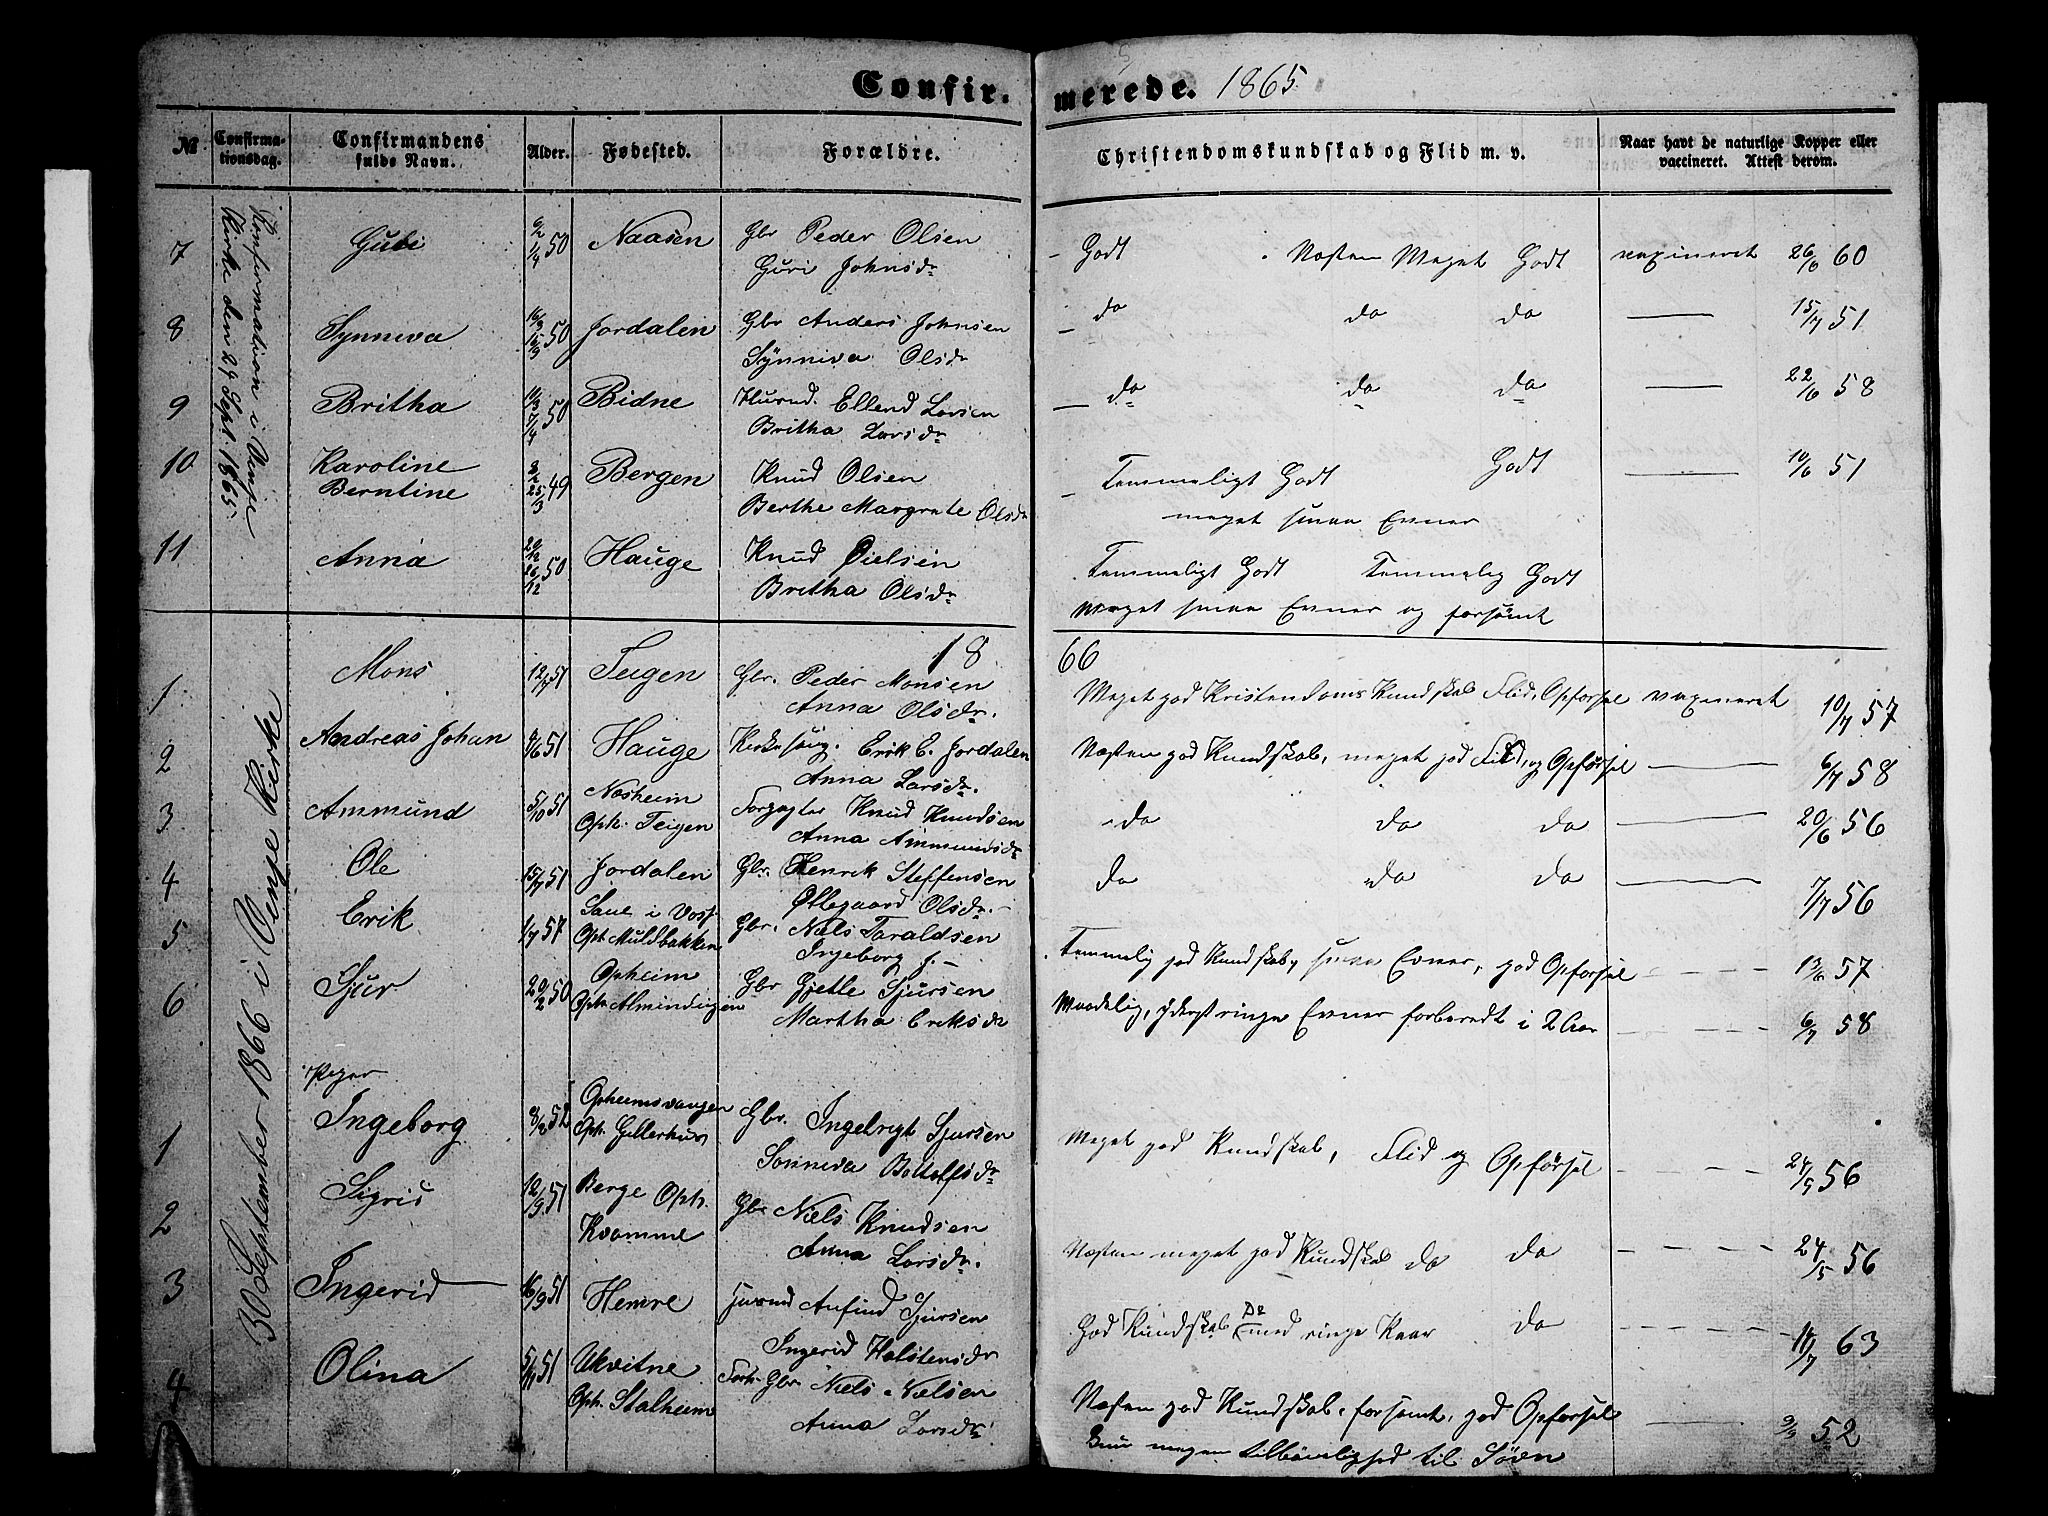 Confir. merede. 1865
№ Confirmationsdag. Confirmandens fulde Navn. Alder. Fødested. Forældre. Christendomskundskab og Flid m. v. Naar havt de naturlige Kopper eller vaccineret. Attest derom.
Konfirmation i Vinje
Kirke den 29 Sept. 1865.
7 Guri 50 Naasen Gbr Peder Olsen Godt Næsten Meget Godt vaxineret 26/6 60
Guri Johnsdr
8 Synneva 50 Jordalen Gbr Anders Johnsen do do do 15/7 51
Synniva Olsdr
9 Britha 50 Bidne Husmd. Ellend Larsen do do do 22/6 58
Britha Larsdr
10 Karoline 49 Bergen Knud Olsen Temmeligt Godt Godt 10/6 51
Berntine Berthe Margrete Olsdr
meget smaa Evner
11 Anna 20/12 26/12 50 Hauge Knud Oielsen Temmeligt Godt Temmelig Godt
Britha Olsdr Meget smaa Evner og forsømt
18 66
30 September 1866 i Vinje Kirke
1 Mons 12/7 51 Teigen Gbr. Peder Monsen Meget god Kristendoms Kundskab Flid, Opførsel vaxineret 10/7 57
Anna Olsdr.
2 Andreas Johan 8/6 51 Hauge Kirkesang. Erik E. Jordalen Næsten god Kundskab, meget god Flid, og Opførsel 6/7 58
Anna Larsdr.
3 Ammund 5/10 51 Nosheim Forpagter Knud Knudsen do do do 20/6 56
Oph. Teigen Anna Ammundsdr
4 Ole 15/7 51 Jordalen Gbr. Henrik Steffensen do do do 7/7 56
Øllegaard Olsdr.
5 Erik 1/7 57 Saue i Voss Gbr. Niels Taraldsen Temmelig god Kundskab, smaa Evner, god Opførsel 13/6 57
Oph. Muldbakken Ingeborg J.
6 Sjur 20/2 50 Opheim Gbr Gjetle Sjursen Maadelig, yderst ringe Evner forberedt i 2 Aar 6/7 58
Oph. Almindingen Martha Eriksdr
Piger
1 Ingeborg 8/2 52 Opheimsvangen Gbr. Ingebrigt Sjursen Meget god Kundskab, Flid og Opførsel 24/5 56
Oph. Gillerhus Sønneva Bottolfsdr
2 Sigrid 12/9 51 Berge Oph. Gbr Niels Knudsen Næsten meget god Kundskab do do 24/5 56
Kvamme Anna Larsdr.
3 Ingerid 16/9 51 Hemre Husmd Anfind Sjursen God Kundskab Do med ringe Kaar do 14/7 63
Ingerid Halstensdr
4 Olina 5/11 51 Ukvitne Forh. Gbr Niels Nielsen Næsten god Kundskab, forsømt, god Opførsel 52
Oph. Stalheim Anna Larsdr. megen tilbøielighed til Søvn